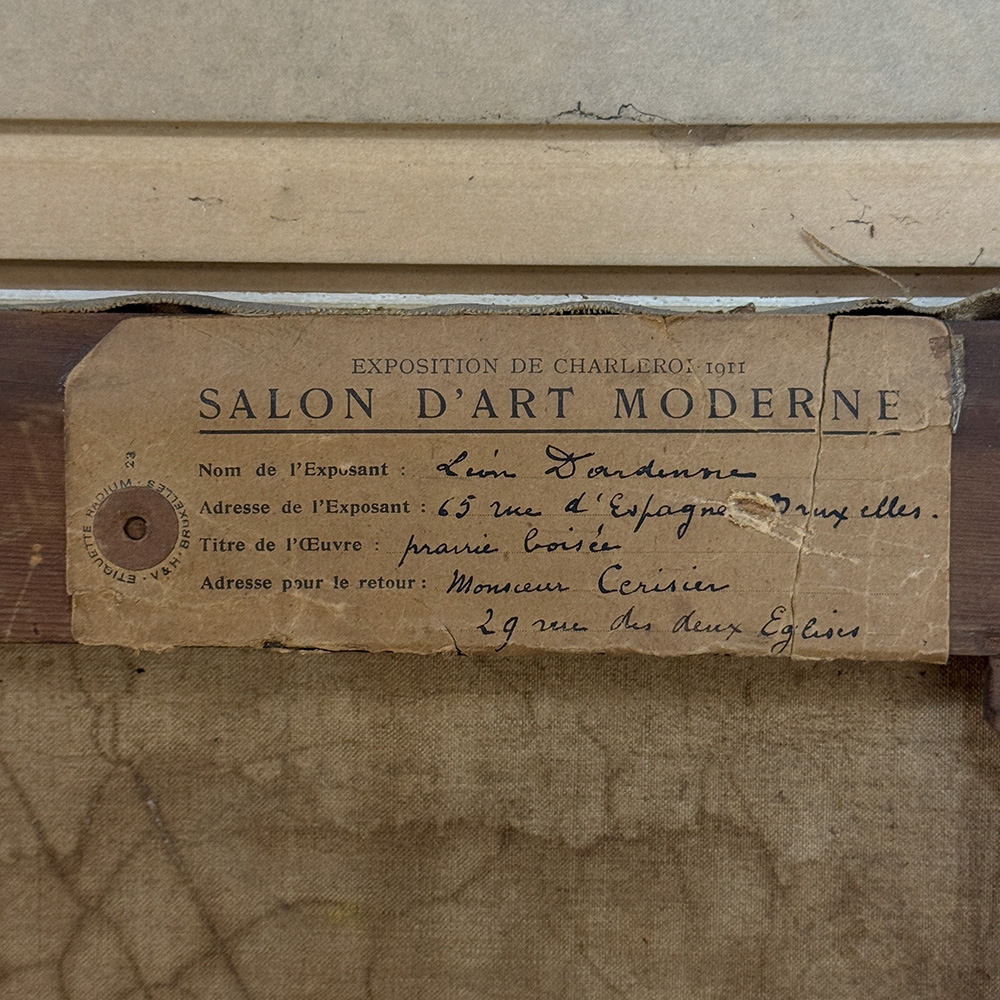 EXPOSITION DE CHARLEROI 1911
SALON D'ART MODERNE
Nom de l'Exposant : Léon Dardenne
Adresse de l'Exposant : 65 rue d'Espagne Bruxelles.
Titre de l'Œuvre : prairie boisée
Adresse pour le retour : Monsieur Cerisier
29 rue des deux Eglises
23
ETIQUETTE V & H · BRUXELLES